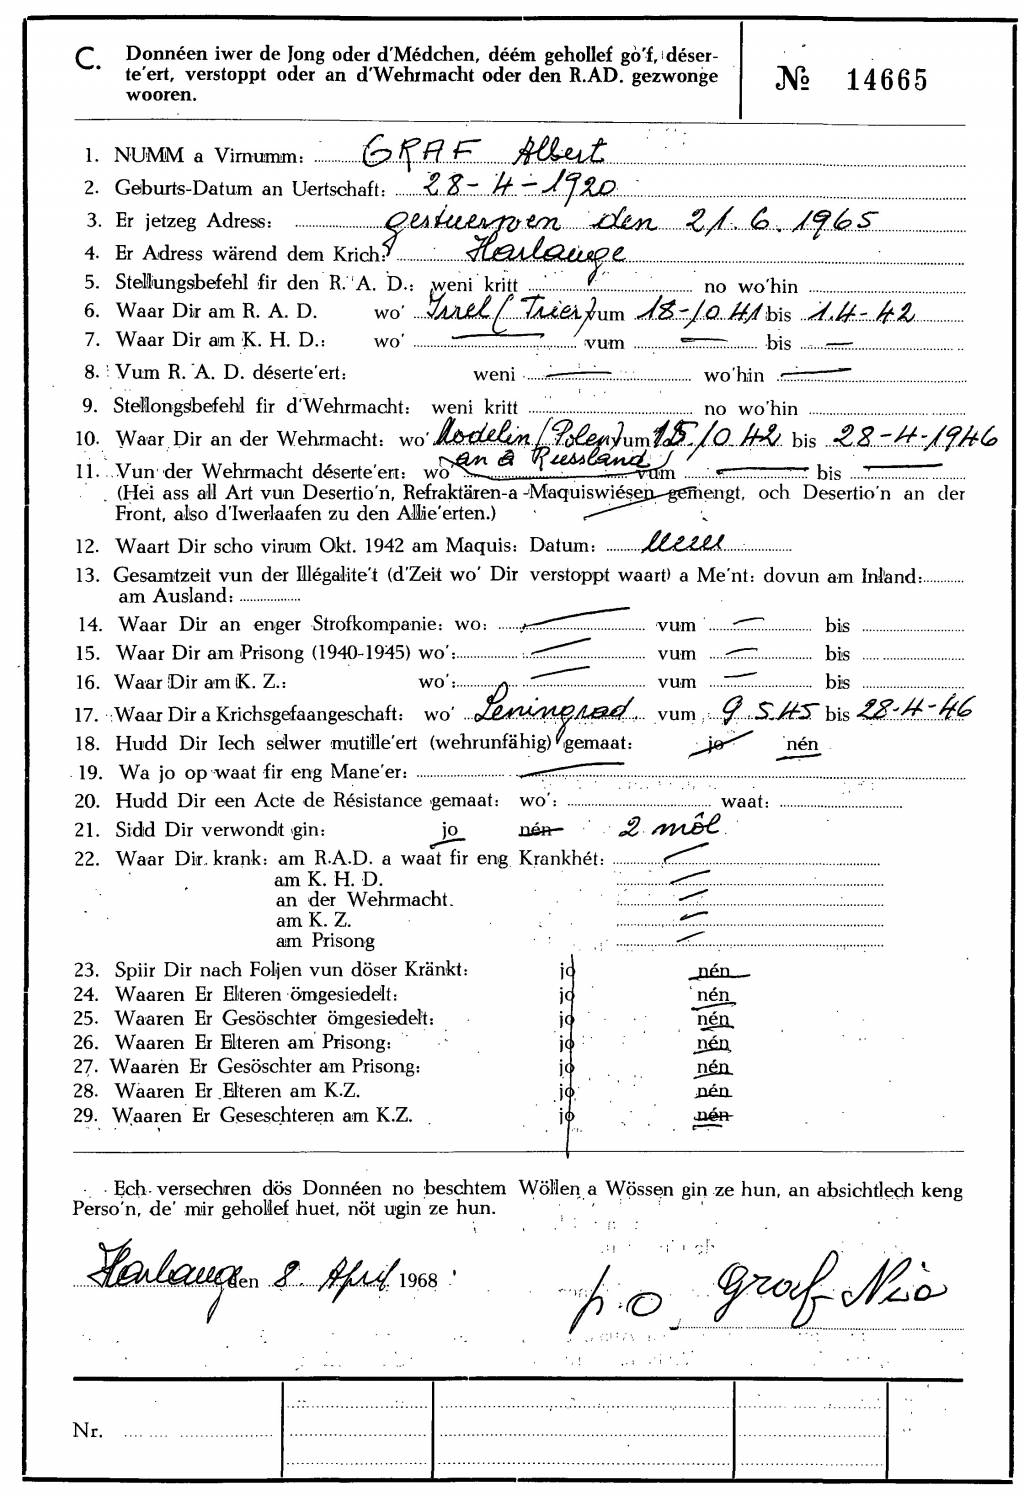 C. Donnéen iwer de Jong oder d'Médchen, déém gehollef go'f, déser-
te'ert, verstoppt oder an d'Wehrmacht oder den R.AD. gezwonge
wooren.
№ 14665
1. NUMM a Virnumm: GRAF Albert
2. Geburts-Datum an Uertschaft: 28-4-1920
3. Er jetzeg Adress: gestuerwen den 21.6.1965
4. Er Adress wärend dem Krich: Harlange
5. Stellungsbefehl fir den R. A. D.: weni kritt no wo'hin
6. Waar Dir am R. A. D. wo' Irrel (Trier) vum 18-10 41 bis 1.4-42
7. Waar Dir am K. H. D.: wo' — vum — bis —
8. Vum R. A. D. déserte'ert: weni — wo'hin —
9. Stellongsbefehl fir d'Wehrmacht: weni kritt no wo'hin
10. Waar Dir an der Wehrmacht: wo' Modelin (Polen) vum 15.10 42 bis 28-4-1946
an a Russland)
11. Vun der Wehrmacht déserte'ert: wo vum — bis —
(Hei ass all Art vun Desertio'n, Refraktären-a -Maquiswiésen gemengt, och Desertio'n an der
Front, also d'Iwerlaafen zu den Allie'erten.)
12. Waart Dir scho virum Okt. 1942 am Maquis: Datum:
13. Gesamtzeit vun der Illégalite't (d'Zeit wo' Dir verstoppt waart) a Me'nt: dovun am Inland:
am Ausland:
14. Waar Dir an enger Strofkompanie: wo: — vum — bis
15. Waar Dir am Prisong (1940-1945) wo': — vum — bis
16. Waar Dir am K. Z.: wo': — vum — bis
17. Waar Dir a Krichsgefaangeschaft: wo' Leningrad vum 9.5.45 bis 28-4-46
18. Hudd Dir Iech selwer mutille'ert (wehrunfähig) gemaat: jo nén
19. Wa jo op waat fir eng Mane'er: —
20. Hudd Dir een Acte de Résistance gemaat: wo': waat:
21. Sidd Dir verwondt gin: jo nén 2 môl
22. Waar Dir krank: am R.A.D. a waat fir eng Krankhét: —
am K. H. D. —
an der Wehrmacht. —
am K. Z. —
am Prisong —
23. Spiir Dir nach Foljen vun döser Kränkt: jo nén
24. Waaren Er Elteren ömgesiedelt: jo nén
25. Waaren Er Gesöschter ömgesiedelt: jo nén
26. Waaren Er Elteren am Prisong: jo nén
27. Waaren Er Gesöschter am Prisong: jo nén
28. Waaren Er Elteren am K.Z. jo nén
29. Waaren Er Geseschteren am K.Z. jo nén
Ech versechren dös Donnéen no beschtem Wöllen a Wössen gin ze hun, an absichtlech keng
Perso'n, de' mir gehollef huet, nöt ugin ze hun.
Harlange den 8. April 1968
p.o. Graf Nico
Nr.